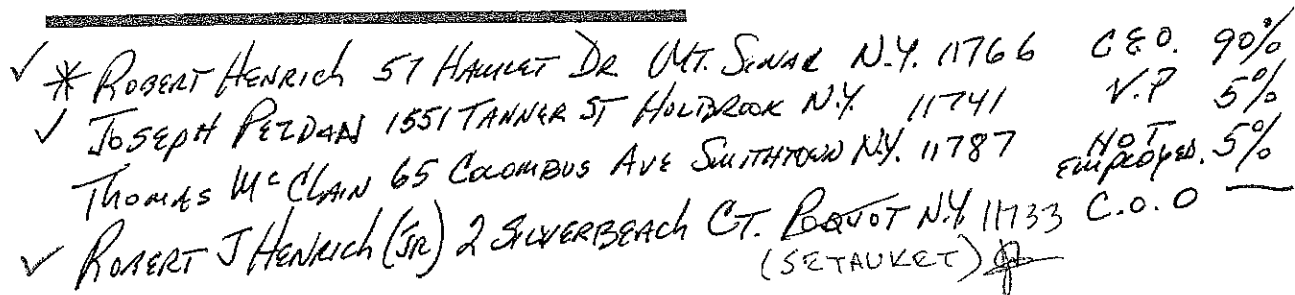 ✓ * ROBERT HENRICH 57 HAMLET DR MT. SINAI N.Y. 11766 C.E.O. 90%
✓ JOSEPH 1551 TANNER ST HOLBROOK N.Y. 11741 V.P 5%
THOMAS McCLAIN 65 COLOMBUS AVE SMITHTOWN N.Y. 11787 NOT EMPLOYED. 5%
✓ ROBERT J HENRICH (JR) 2 SILVERBEACH CT. POQUOT N.Y. 11733 C.O.O —
(SETAUKET)